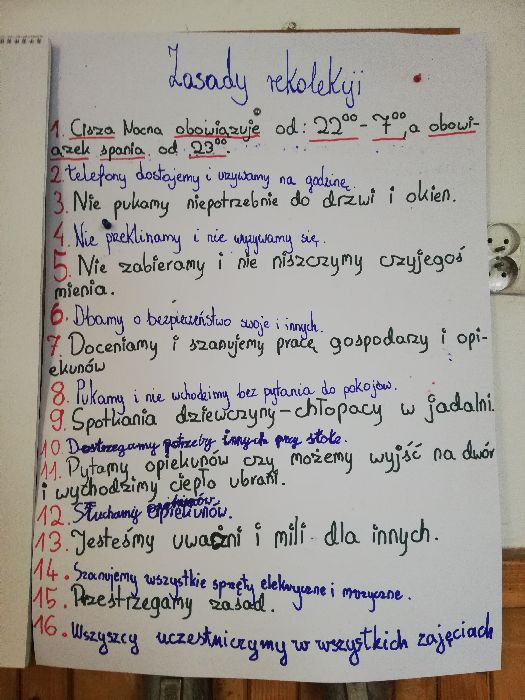 Zasady rekolekcji
1. Cisza Nocna obowiązuje od: 22⁰⁰ - 7⁰⁰, a obowi-
ązek spania od 23⁰⁰.
2. telefony dostajemy i używamy na godzinę.
3. Nie pukamy niepotrzebnie do drzwi i okien.
4. Nie przeklinamy i nie wyzywamy się.
5. Nie zabieramy i nie niszczymy czyjegoś
mienia.
6. Dbamy o bezpieczeństwo swoje i innych.
7. Doceniamy i szanujemy pracę gospodarzy i opi-
ekunów
8. Pukamy i nie wchodzimy bez pytania do pokojów.
9. Spotkania dziewczyny - chłopacy w jadalni.
10. Dostrzegamy potrzeby innych przy stole.
11. Pytamy opiekunów czy możemy wyjść na dwór
i wychodzimy ciepło ubrani.
12. Słuchamy opiekunów.
13. Jesteśmy uważni i mili dla innych.
14. Szanujemy wszystkie sprzęty elektryczne i muzyczne.
15. Przestrzegamy zasad.
16. Wszyscy uczestniczymy w wszystkich zajęciach